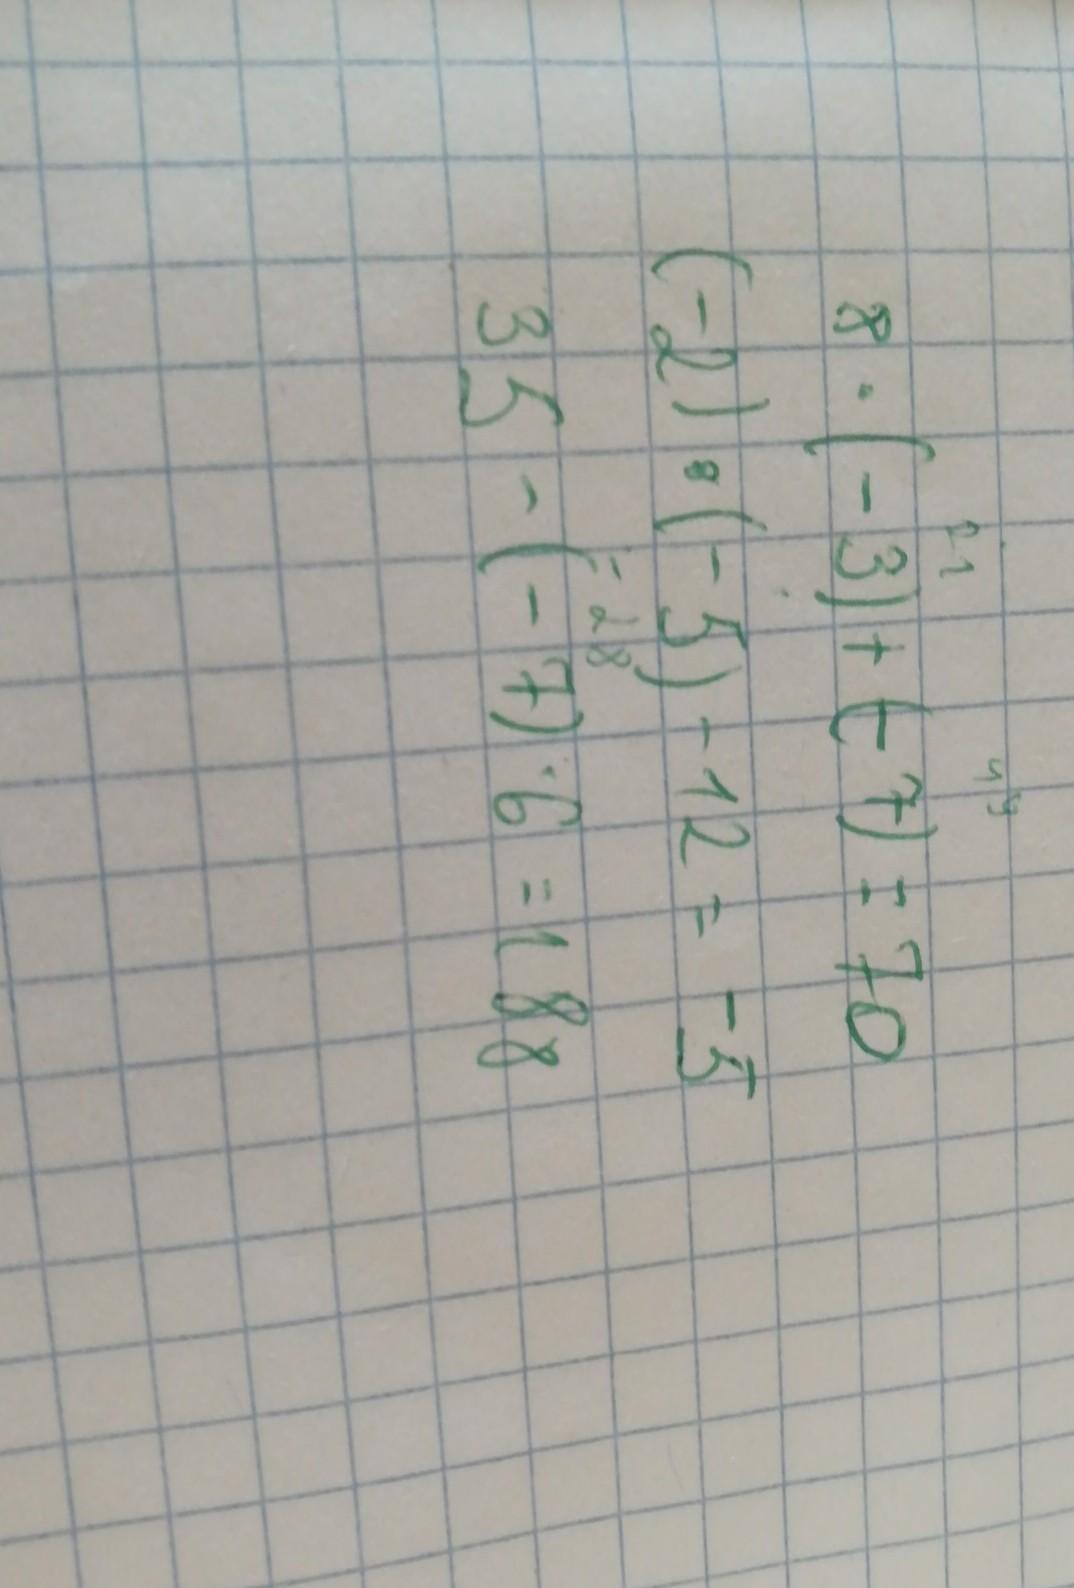 8 · (-3) + (-7) = 70
(-2) · (-5) - 12 = -5
-28
35 - (-7) · 6 = 188